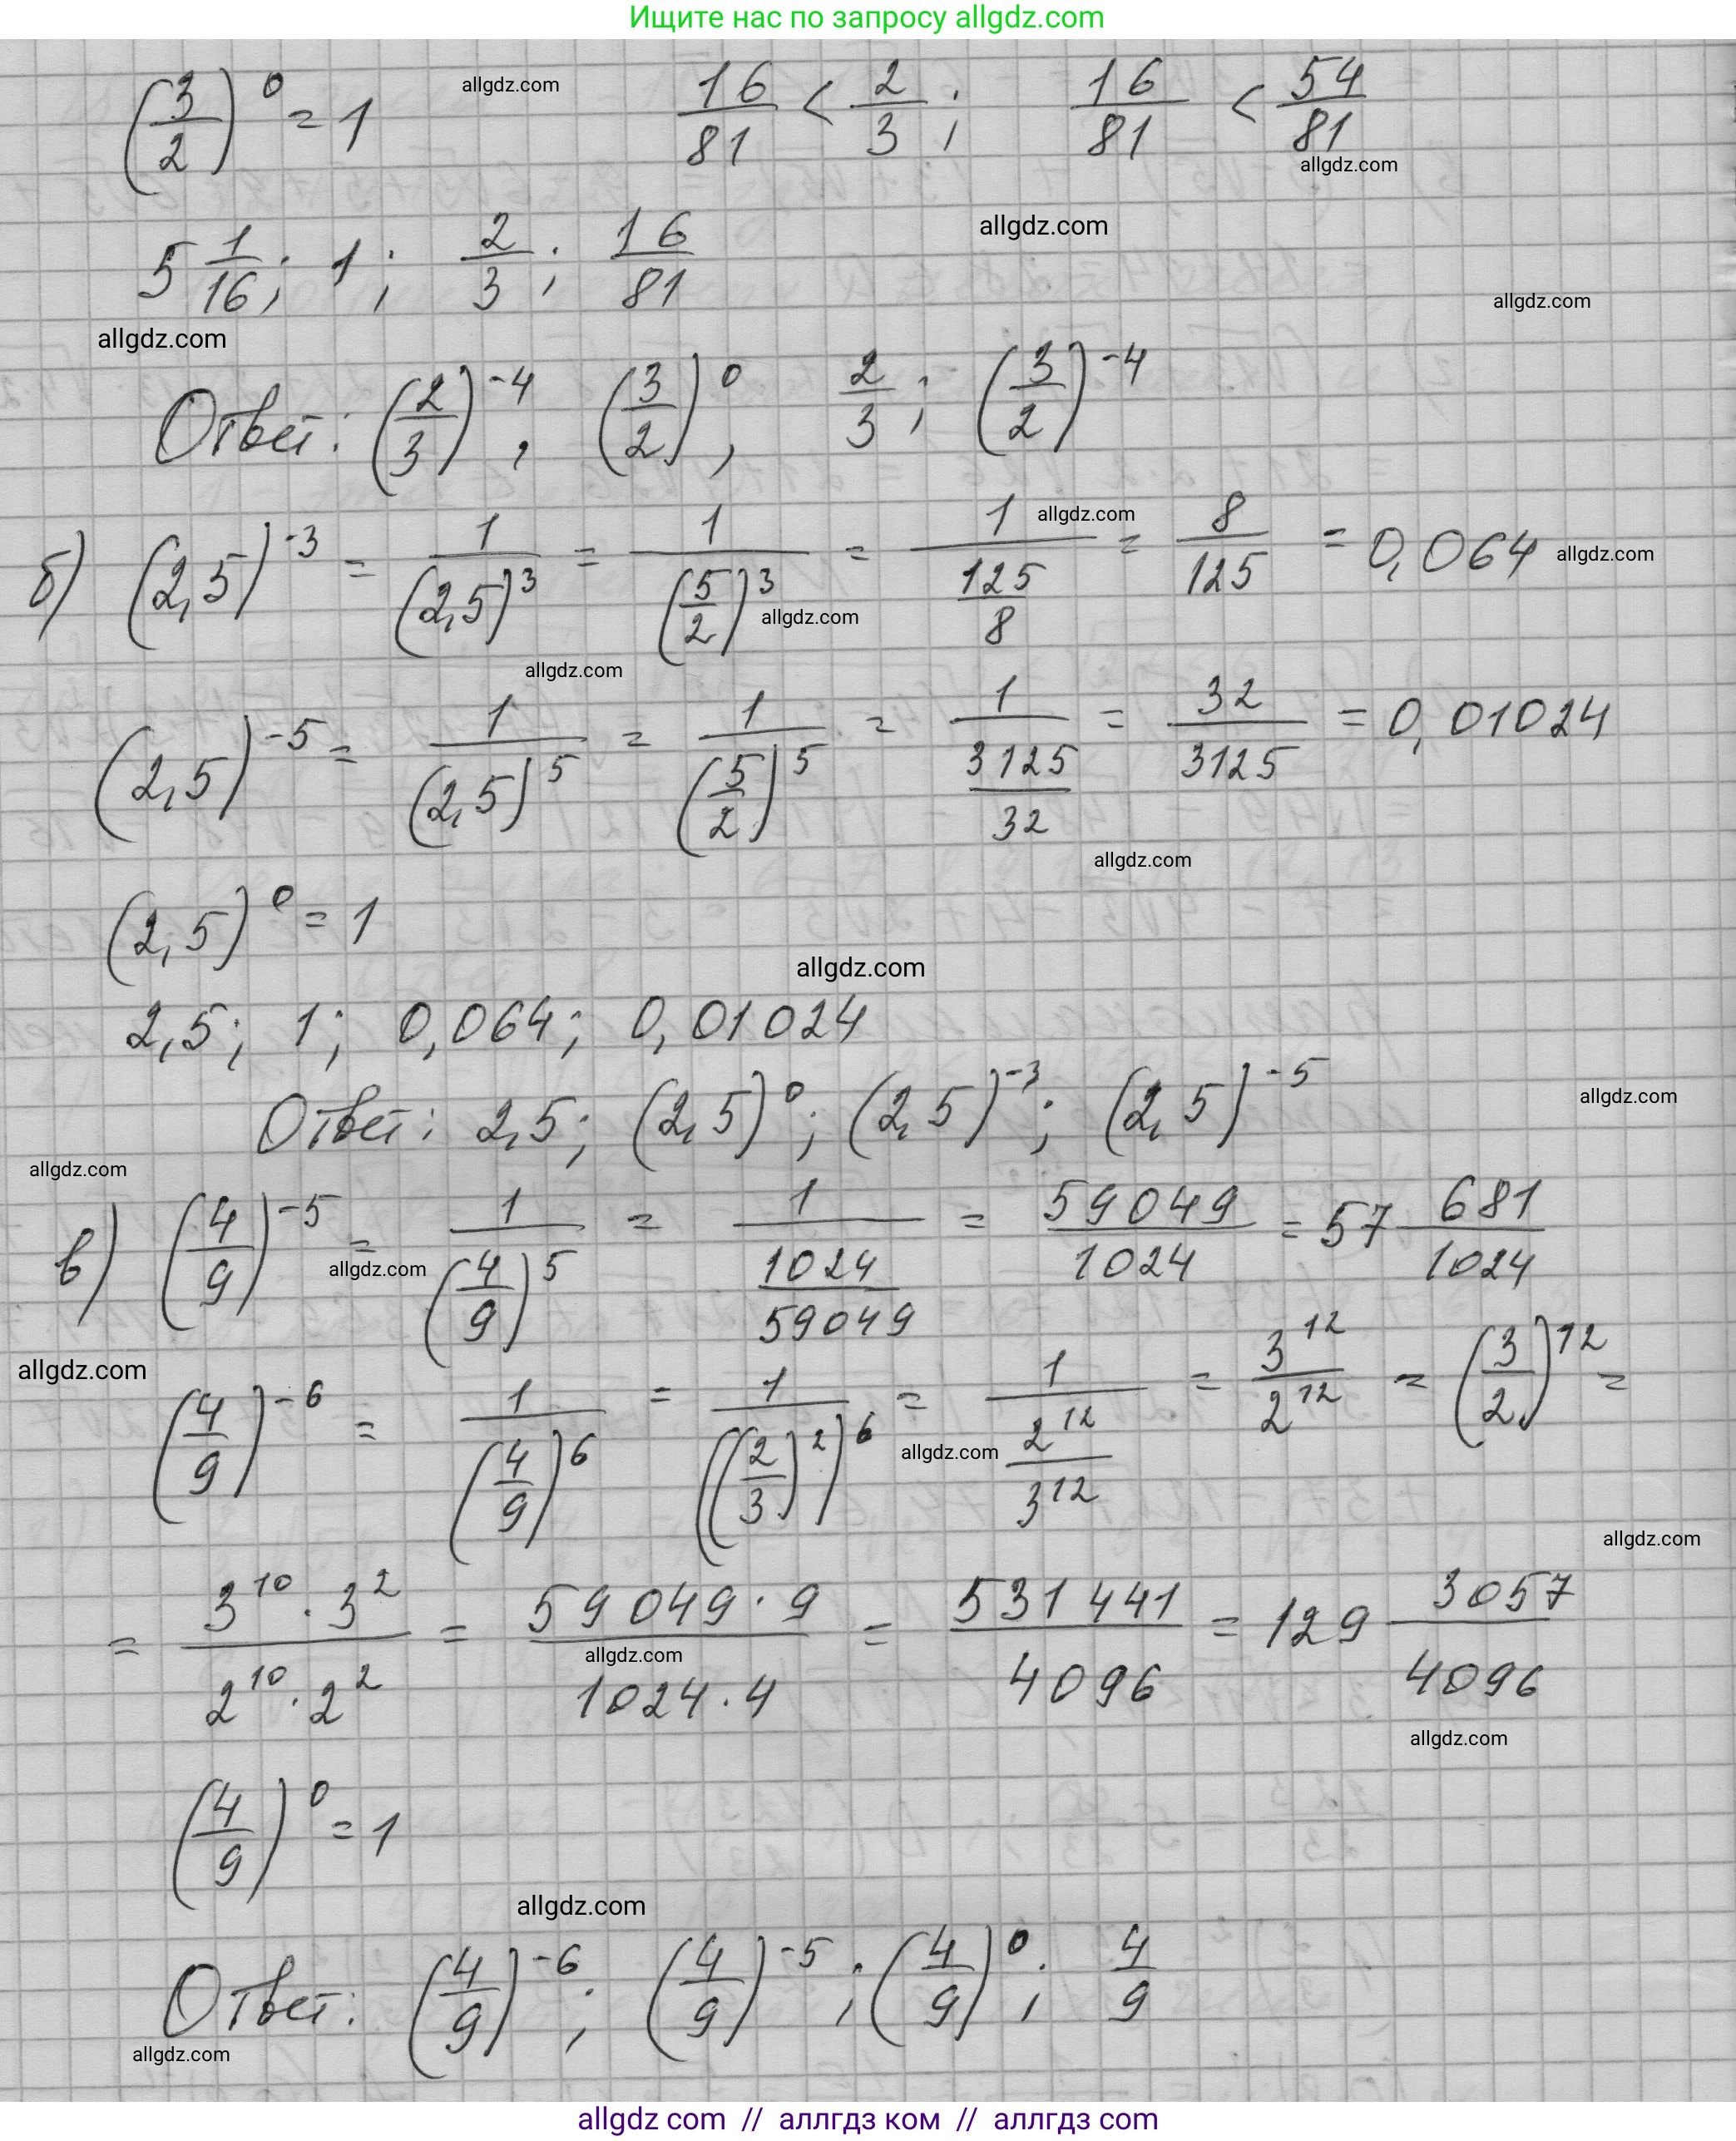 Ищите нас по запросу allgdz.com
(3/2)^0 = 1 allgdz.com 16/81 < 2/3; 16/81 < 54/81
allgdz.com
5 1/16; 1; 2/3; 16/81 allgdz.com
allgdz.com
allgdz.com
Ответ: (2/3)^-4, (3/2)^0, 2/3; (3/2)^-4
б) (2,5)^-3 = 1/(2,5)^3 = 1/(5/2)^3 = 1/(125/8) = 8/125 = 0,064
allgdz.com allgdz.com
allgdz.com
allgdz.com
(2,5)^-5 = 1/(2,5)^5 = 1/(5/2)^5 = 1/(3125/32) = 32/3125 = 0,01024
allgdz.com
(2,5)^0 = 1
allgdz.com
2,5; 1; 0,064; 0,01024
Ответ: 2,5; (2,5)^0; (2,5)^-3; (2,5)^-5
allgdz.com
allgdz.com
в) (4/9)^-5 = 1/(4/9)^5 = 1/(1024/59049) = 59049/1024 = 57 681/1024
allgdz.com
allgdz.com
(4/9)^-6 = 1/(4/9)^6 = 1/((2/3)^2)^6 = 1/(2^12/3^12) = 3^12/2^12 = (3/2)^12 =
allgdz.com
allgdz.com
= 3^10 · 3^2/2^10 · 2^2 = 59049 · 9/1024 · 4 = 531441/4096 = 129 3057/4096
allgdz.com
allgdz.com
(4/9)^0 = 1
allgdz.com
Ответ: (4/9)^-6; (4/9)^-5; (4/9)^0; 4/9
allgdz.com
allgdz com // аллгдз ком // аллгдз com